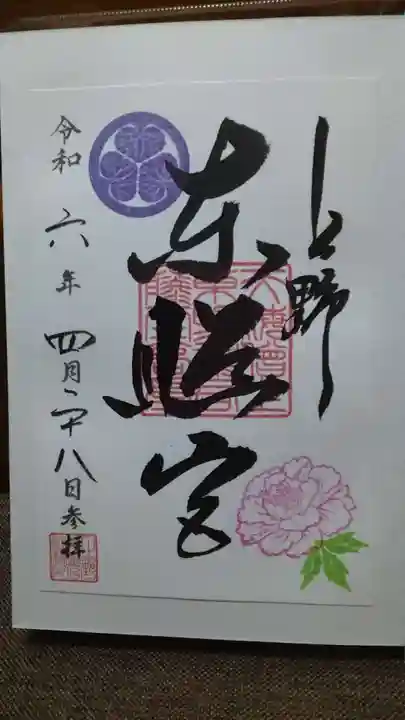 上野
東照宮
令和六年四月二十八日参拝